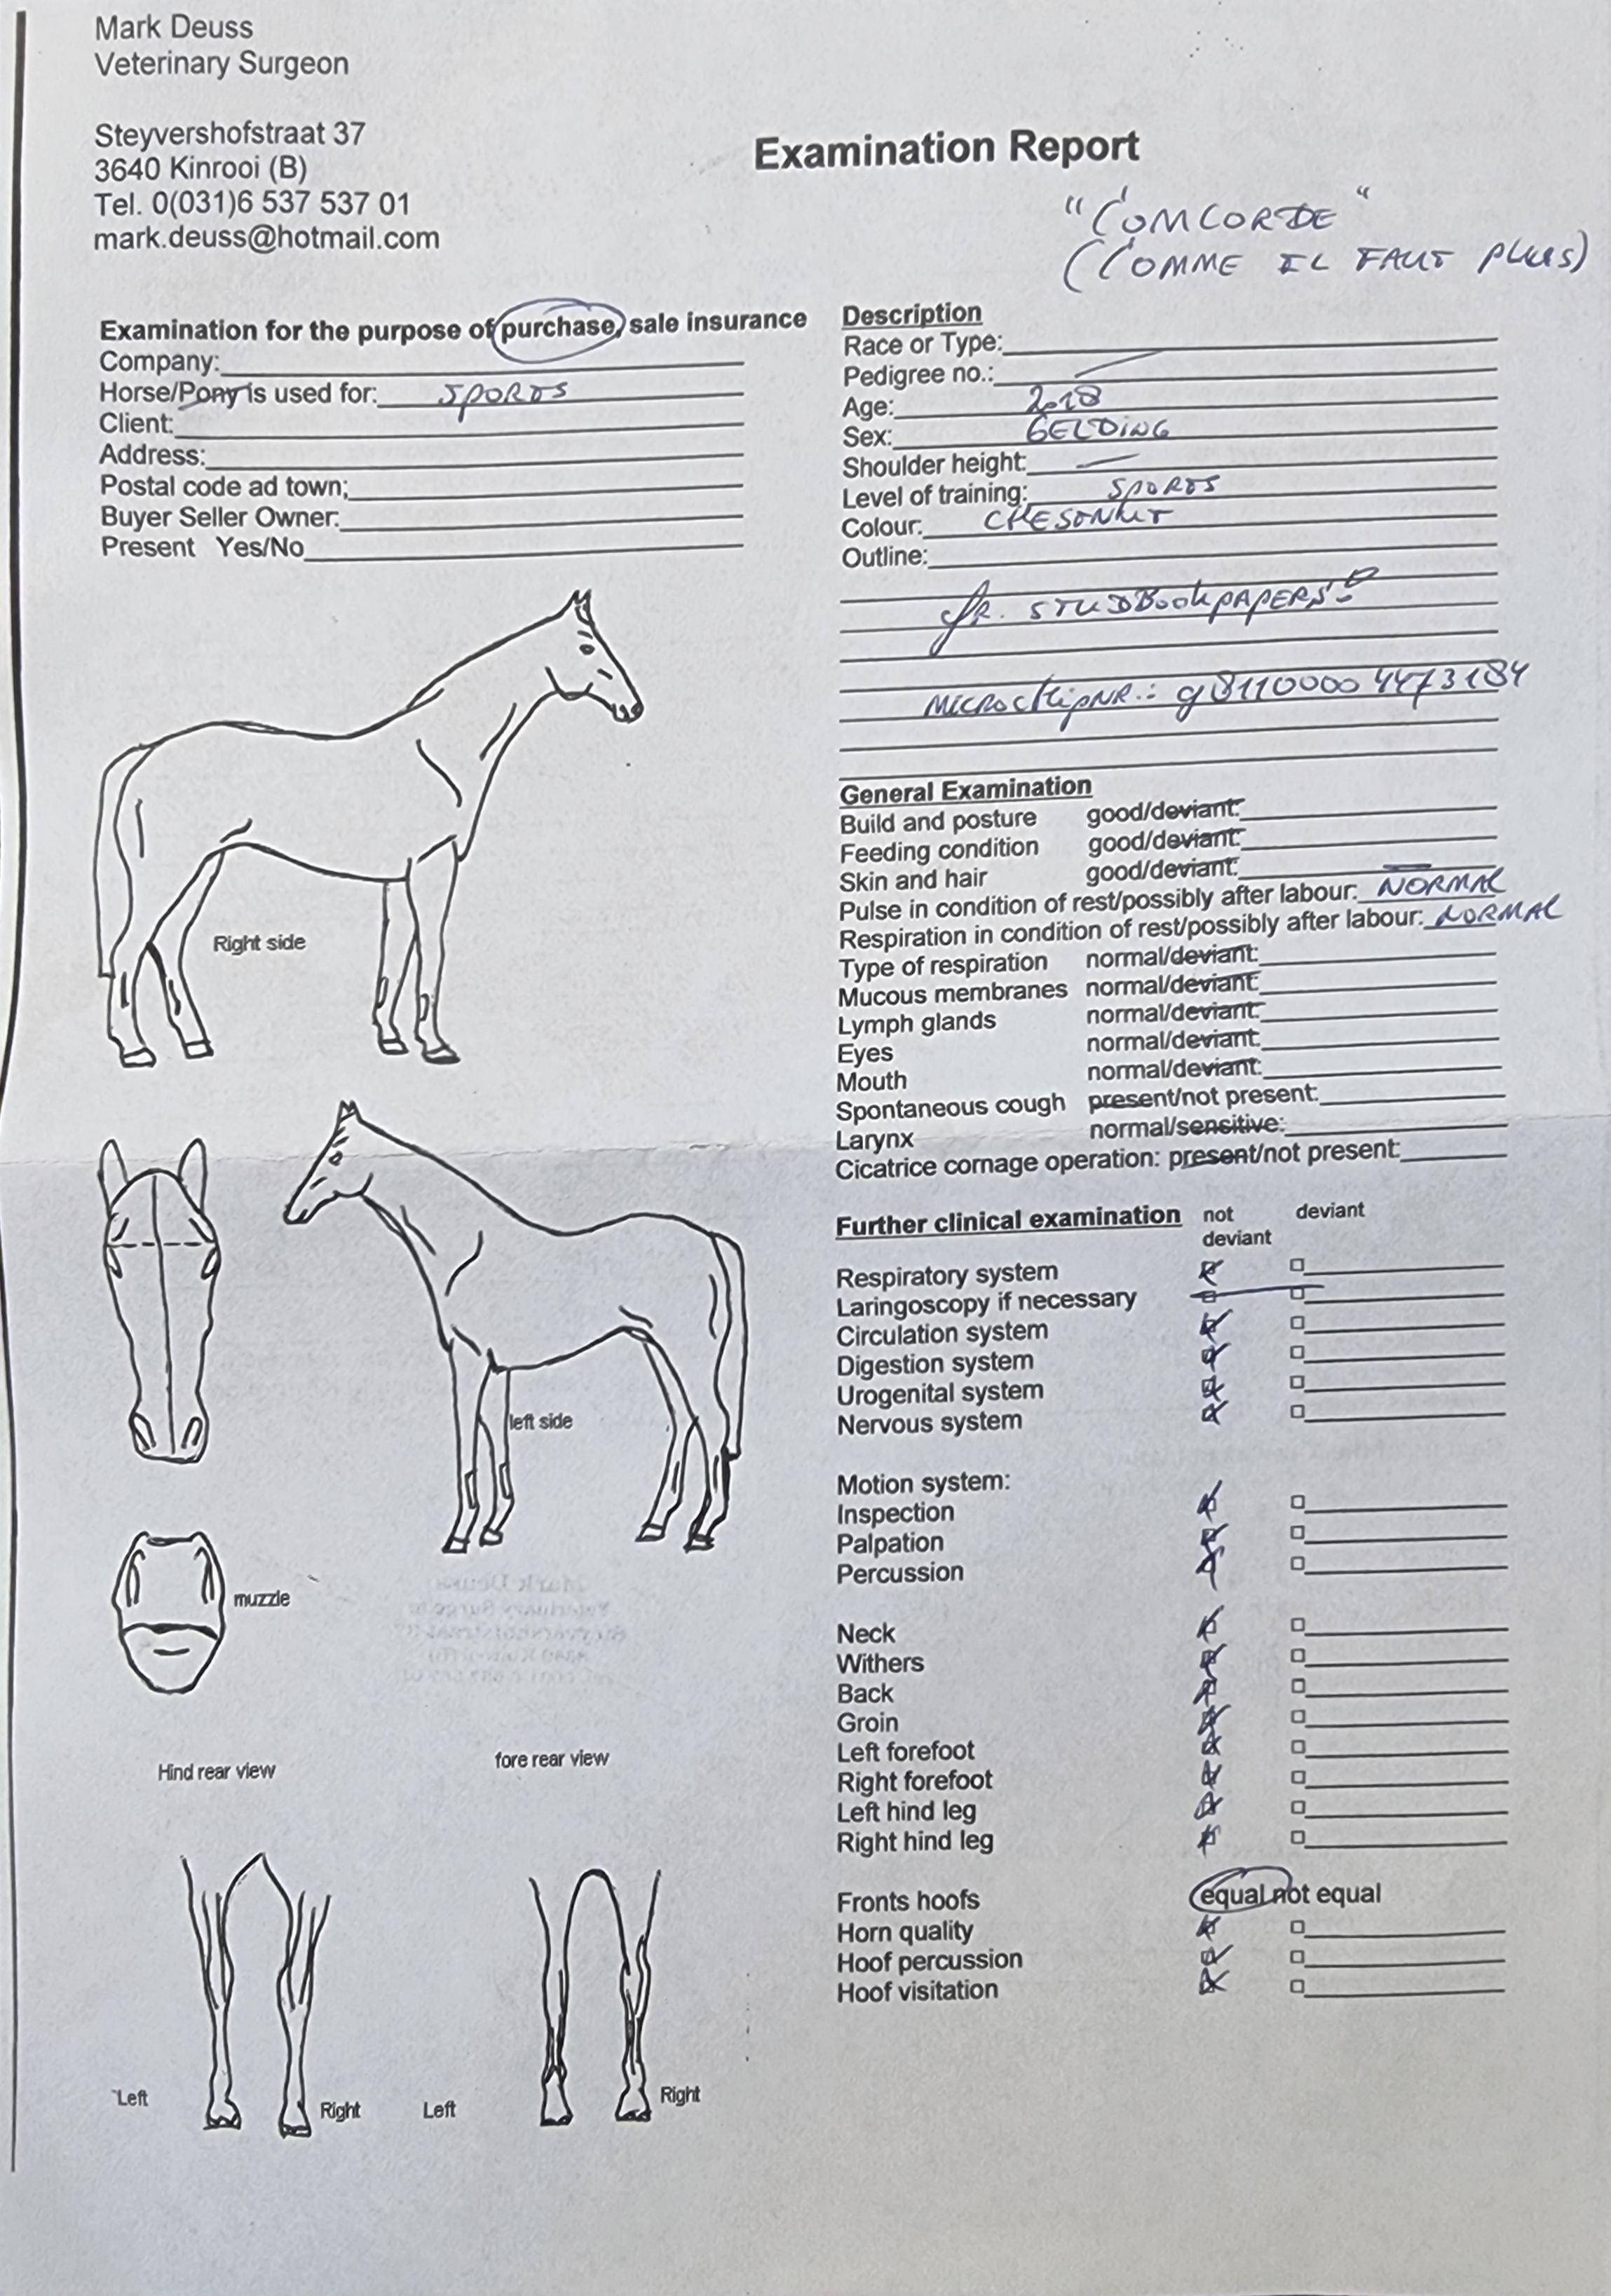 Mark Deuss
Veterinary Surgeon
Steyvershofstraat 37
3640 Kinrooi (B)
Tel. 0(031)6 537 537 01
mark.deuss@hotmail.com
Examination Report
"COMCORDE"
(COMME IL FAUT PLUS)
Examination for the purpose of purchase, sale insurance
Company:
Horse/Pony is used for: SPORTS
Client:
Address:
Postal code ad town;
Buyer Seller Owner:
Present Yes/No
Right side
left side
muzzle
Hind rear view
fore rear view
Left
Right
Left
Right
Description
Race or Type:
Pedigree no.:
Age: 2018
Sex: GELDING
Shoulder height:
Level of training: SPORTS
Colour: CHESTNUT
Outline:
STUDBOOKPAPERS
MICROCHIPNR.: 981100004473184
General Examination
Build and posture good/deviant:
Feeding condition good/deviant:
Skin and hair good/deviant:
Pulse in condition of rest/possibly after labour: NORMAL
Respiration in condition of rest/possibly after labour: NORMAL
Type of respiration normal/deviant:
Mucous membranes normal/deviant:
Lymph glands normal/deviant:
Eyes normal/deviant:
Mouth normal/deviant:
Spontaneous cough present/not present:
Larynx normal/sensitive:
Cicatrice cornage operation: present/not present:
Further clinical examination not deviant deviant
Respiratory system
Laringoscopy if necessary
Circulation system
Digestion system
Urogenital system
Nervous system
Motion system:
Inspection
Palpation
Percussion
Neck
Withers
Back
Groin
Left forefoot
Right forefoot
Left hind leg
Right hind leg
Fronts hoofs equal not equal
Horn quality
Hoof percussion
Hoof visitation